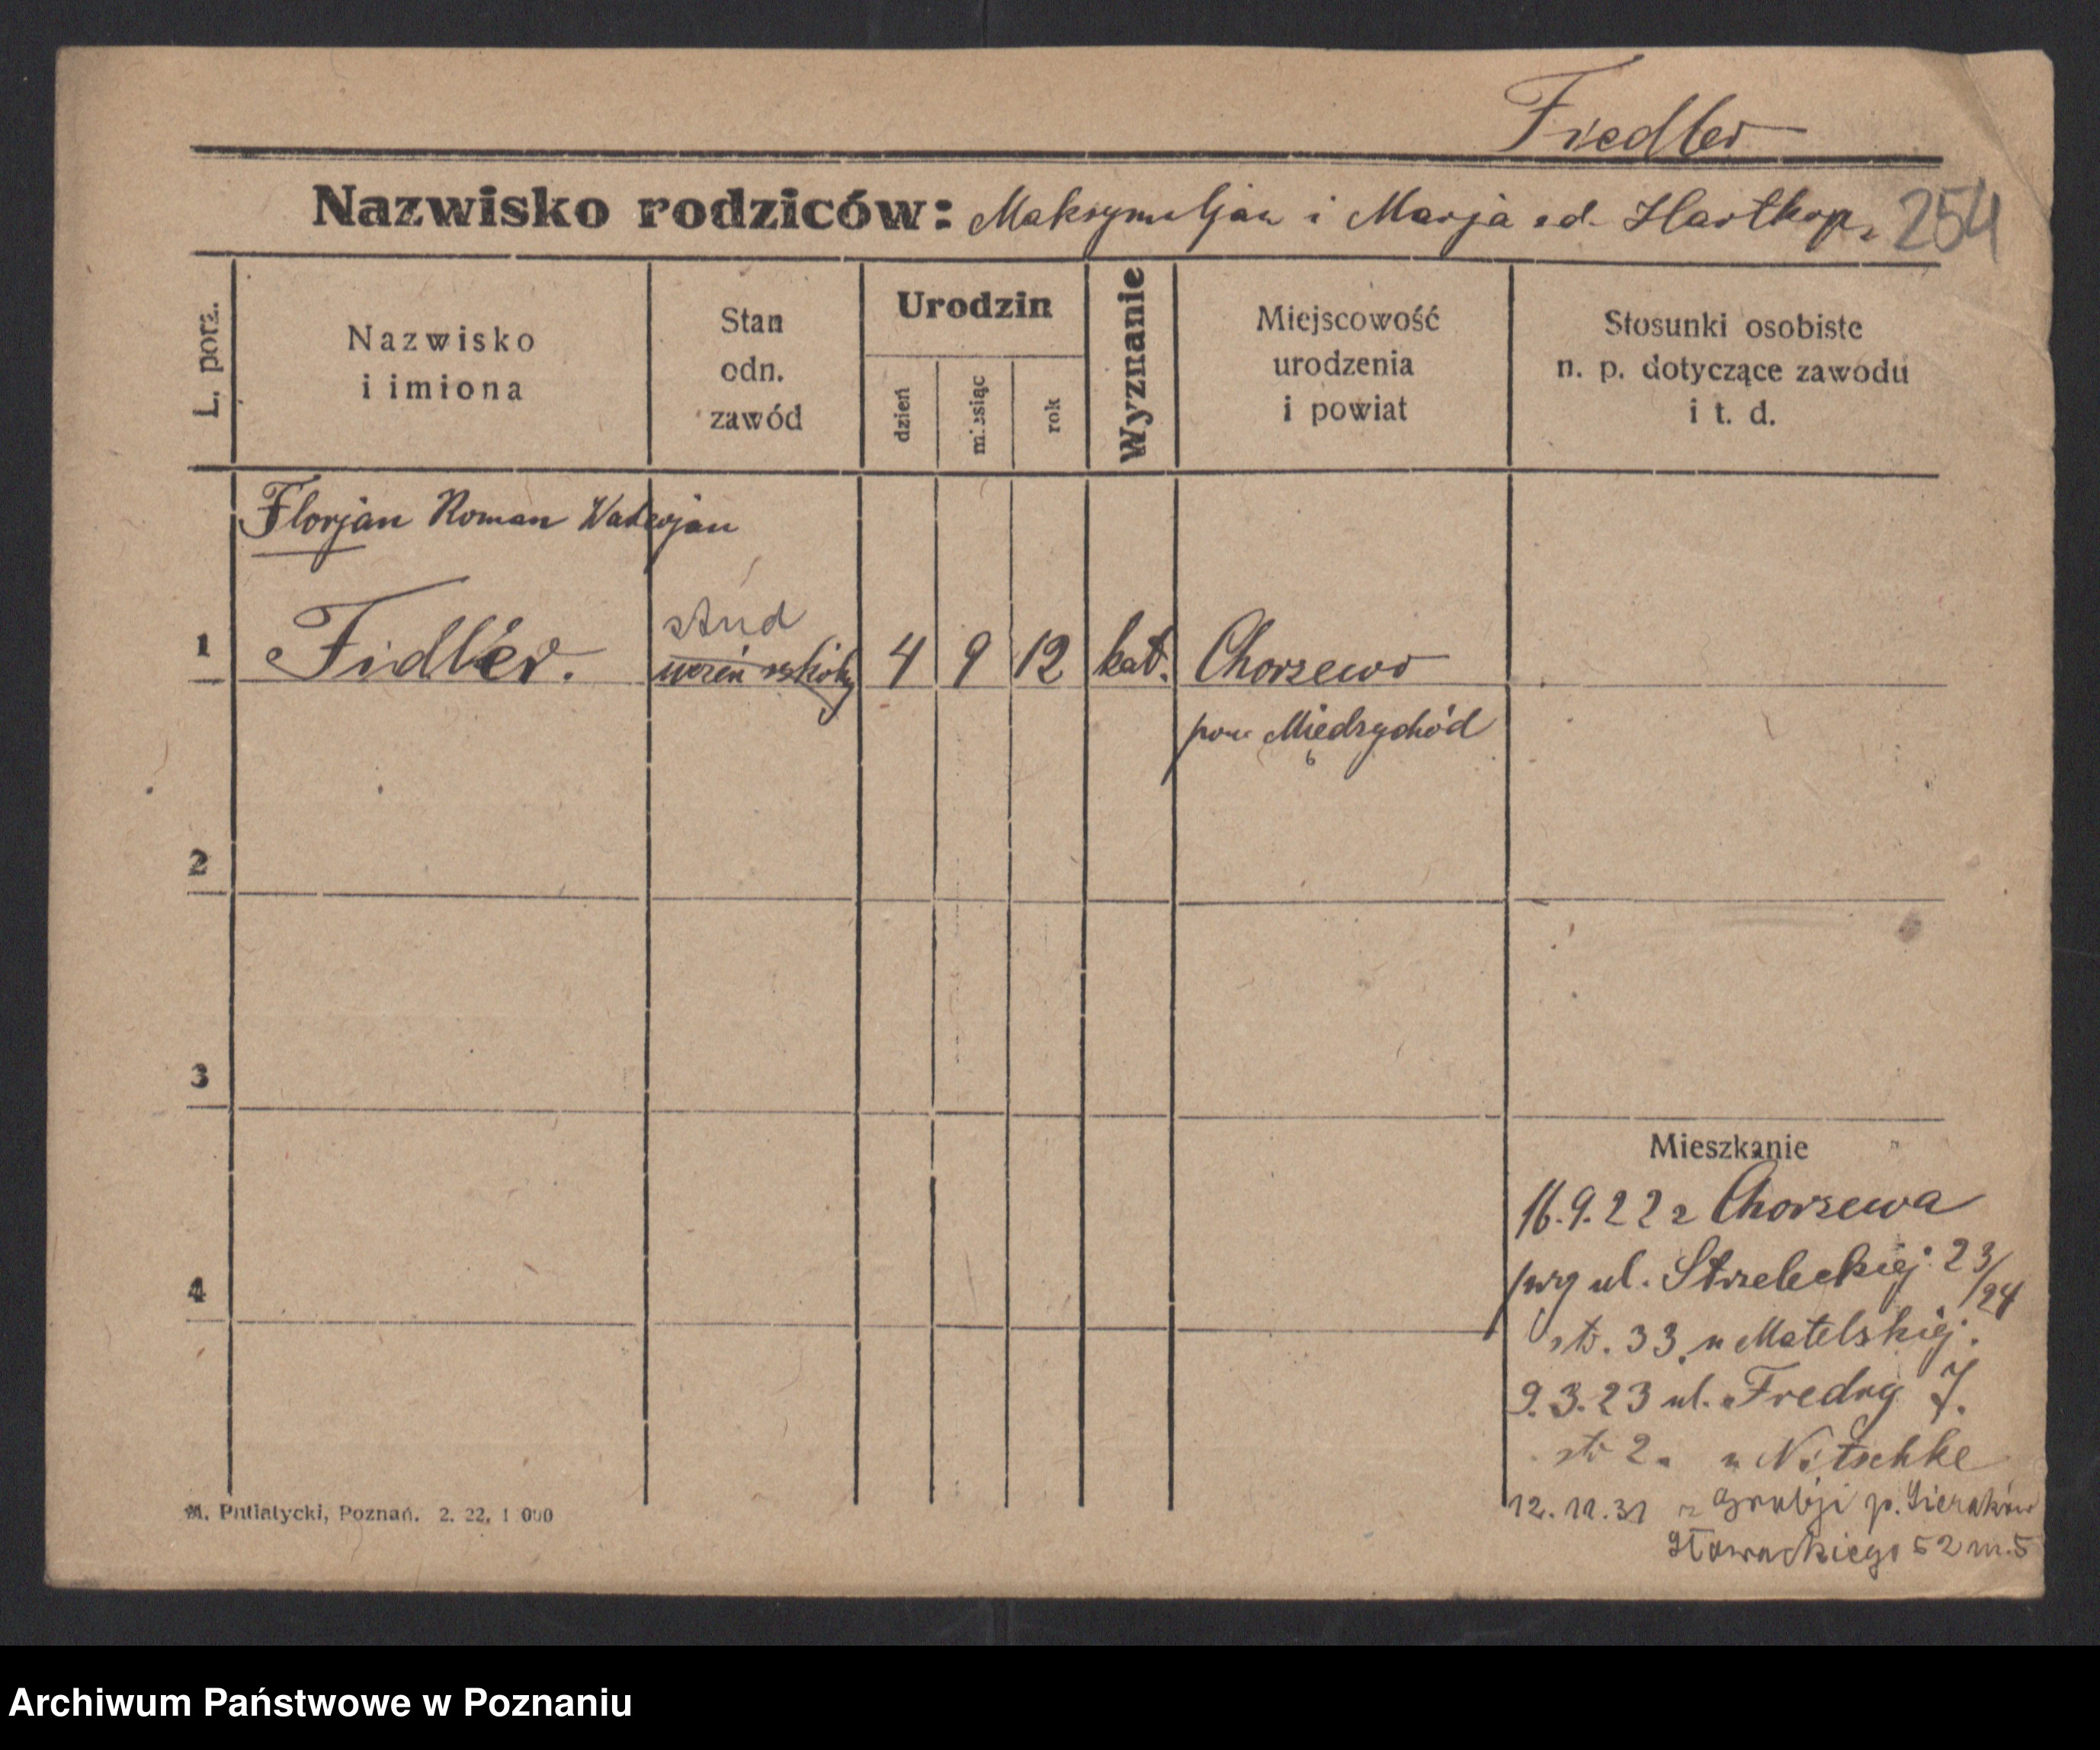 Fiedler
Nazwisko rodziców: Maksymiljan i Marja z d. Hartkop
254
L. porz.
Nazwisko
i imiona
Stan
odn.
zawód
Urodzin
dzień
miesiąc
rok
Wyznanie
Miejscowość
urodzenia
i powiat
Stosunki osobiste
n. p. dotyczące zawodu
i t. d.
Florjan Roman Walerjan
stud
1 Fidler. uczeń szkoły 4 9 12 kat. Chorzewo
pow Międzychód
2
3
Mieszkanie
16.9.22 z Chorzewa
ul. Strzeleckiej 23/24
4
33 u Matelskiej.
9.3.23 ul. Fredry 7.
2 u Nitschke
12.11.31 z p. Sieraków
Słowackiego 52 m. 5
M. Putiatycki, Poznań. 2. 22. 1 000
Archiwum Państwowe w Poznaniu